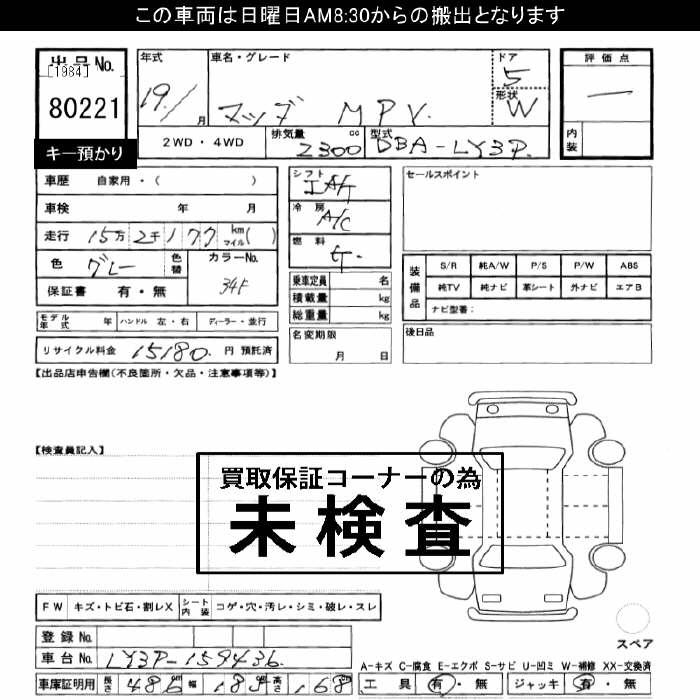 この車両は日曜日AM8:30からの搬出となります
出品No.
[1984]
80221
キー預かり
年式
19.1
月
車名・グレード
マツダ MPV.
ドア
5
形状
W
評価点
一
内装
2WD・4WD
排気量 cc
2300
型式
DBA-LY3P.
車歴 自家用・( )
車検 年 月
走行 15万2千177 km マイル( )
色 グレー 色替
カラーNo.
34F
保証書 有・無
シフト
IAT
冷房
A/C
燃料
乗車定員 名
積載量 kg
総重量 kg
セールスポイント
装備品
S/R 純A/W P/S P/W ABS
純TV 純ナビ 革シート 外ナビ エアB
ナビ型番:
モデル年式 年 ハンドル 左・右 ディーラー・並行
リサイクル料金 15180. 円 預託済
名変期限
月 日
後日品
【出品店申告欄(不良箇所・欠品・注意事項等)】
【検査員記入】
買取保証コーナーの為
未検査
FW キズ・トビ石・割レX シート内装 コゲ・穴・汚レ・シミ・破レ・スレ
スペア
登録No.
車台No. LY3P-159436
A-キズ C-腐食 E-エクボ S-サビ U-凹ミ W-補修 XX-交換済
車庫証明用 長さ 486 幅 185 高さ 168
工具 有・無 ジャッキ 有・無